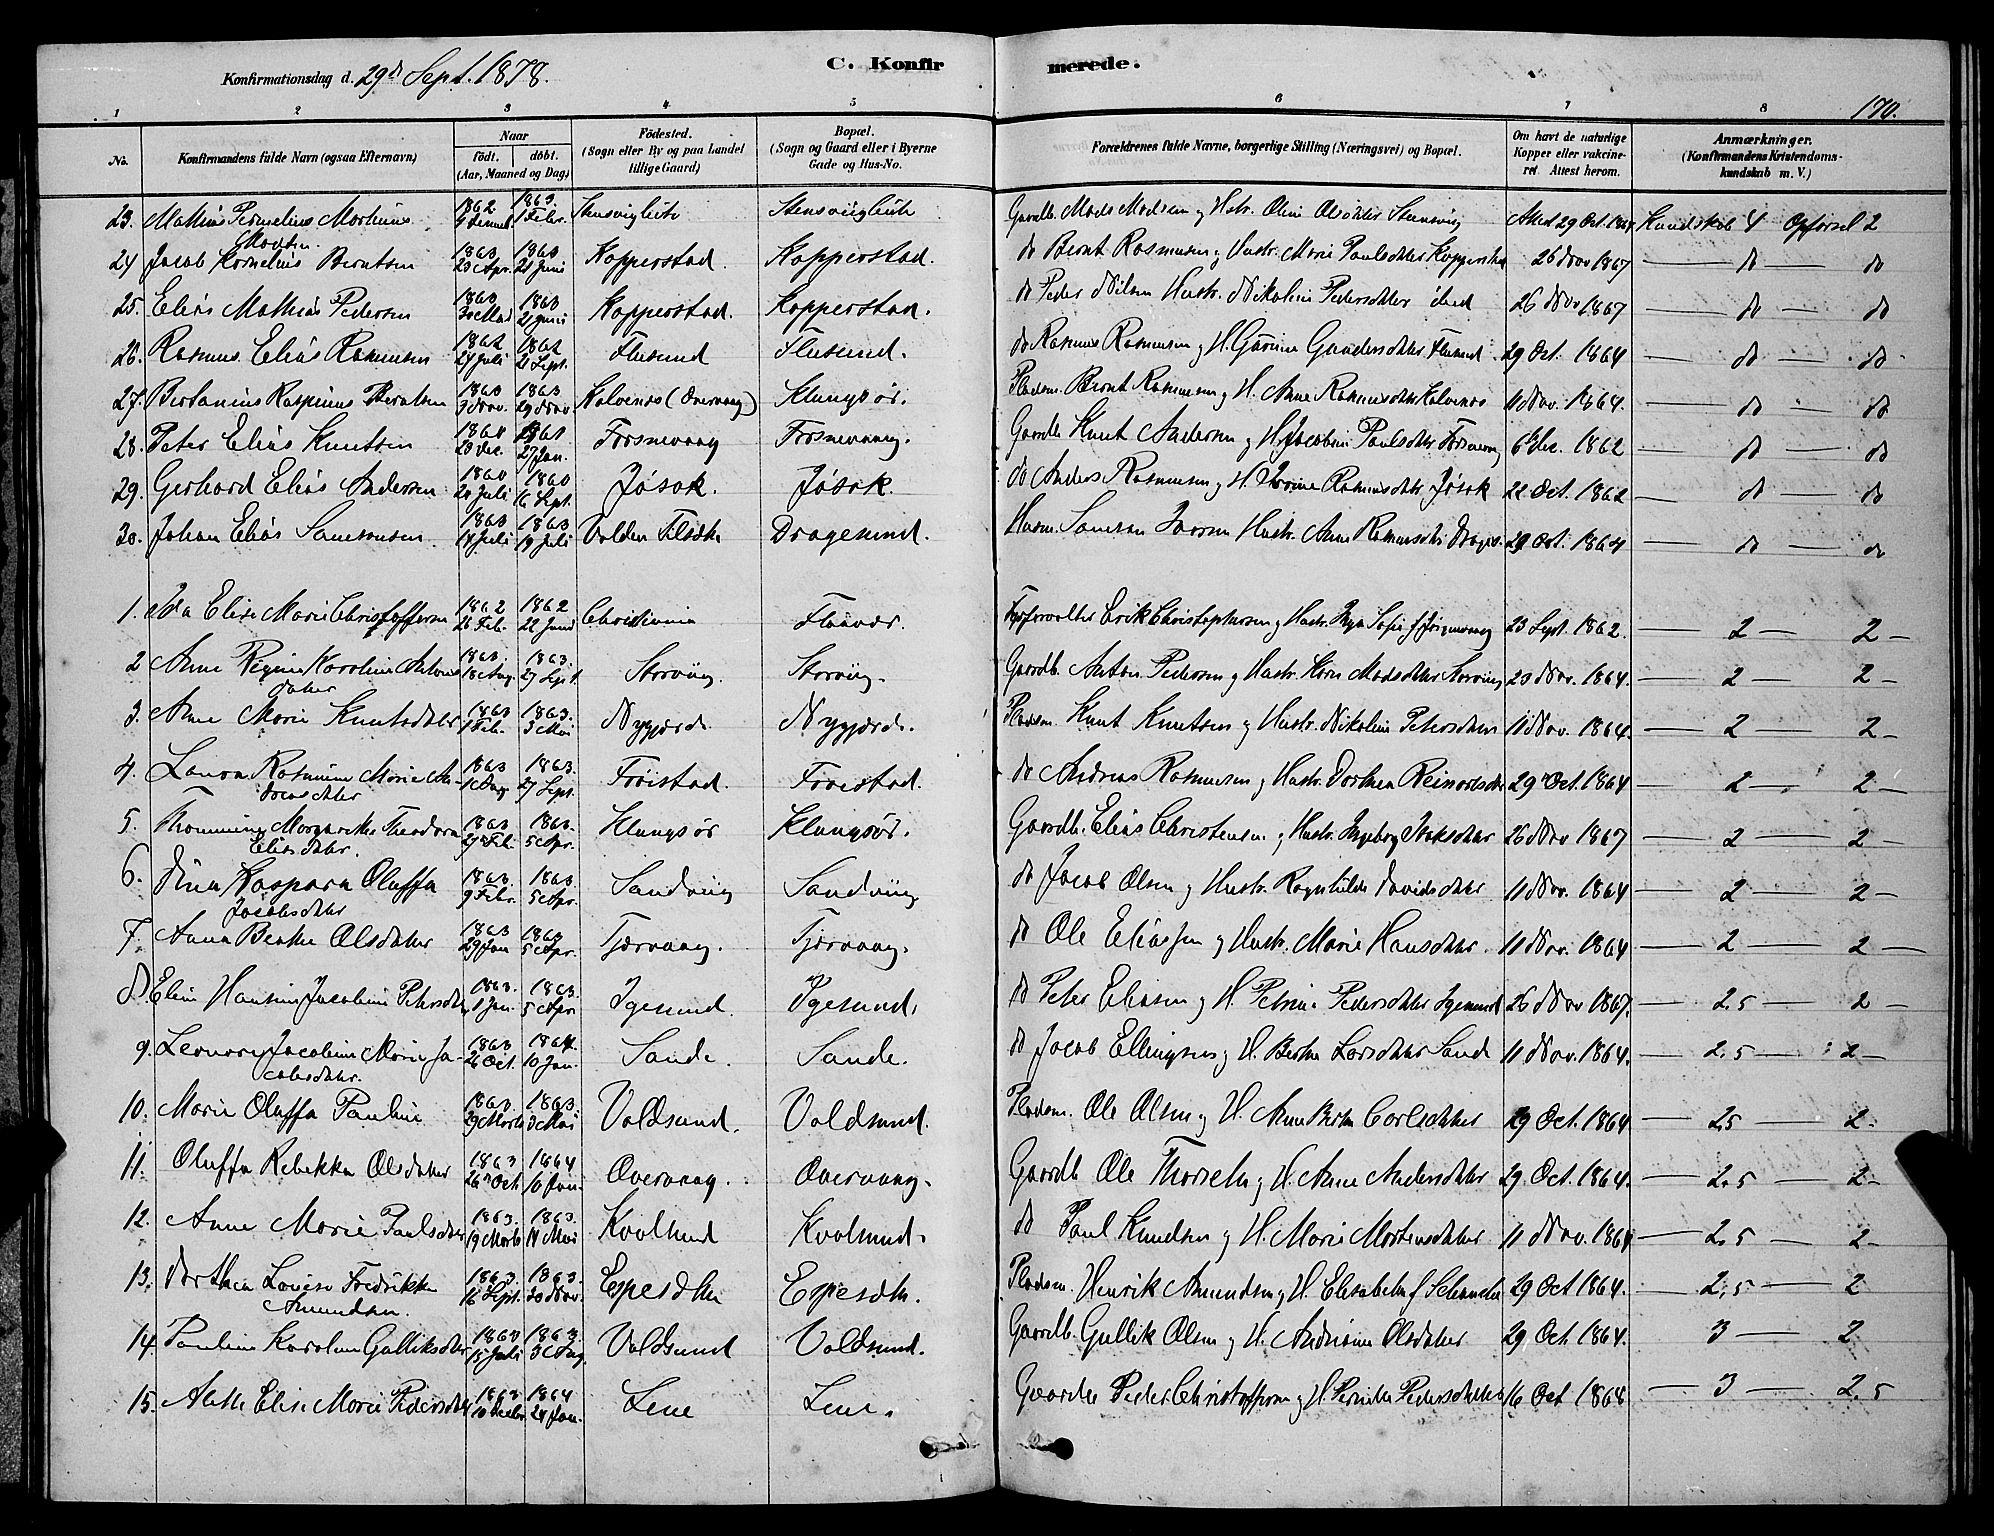 Konfirmationsdag d. 29d Sept. 1878.
C. Konfirmerede.
170.
1 2 3 4 5 6 7 8
No. Konfirmandens fulde Navn (ogsaa Efternavn) Naar födt. döbt. (Aar, Maaned og Dag) Födested. (Sogn eller By og paa Landet tillige Gaard) Bopæl. (Sogn og Gaard eller i Byerne Gade og Hus-No. Forældrenes fulde Navne, borgerlige Stilling (Næringsvei) og Bopæl. Om havt de naturlige Kopper eller vakcineret. Attest herom. Anmærkninger. (Konfirmandens Kristendomskundskab m. V.)
23. Mathias Martinus Madsen 1862 1863. 1 Febr. Gaardb. Mads Madsen og Hstr. Oline Olsdtter 29 Oct. Kundskab 4 Opførsel 2
24 Jacob Kornelius Berntsen 1863 23 Apr. 1863 21 Juni Kopperstad. Kopperstad. do Bernt Rasmussen og Hustr. Marie Paulsdtter Kopperstad 26 Nov 1867 — do — do
25. Elias Mathias Pedersen 1863 1863 21 Juni Kopperstad. Kopperstad. do Peder Nilsen Hustr. Nikoline Pedersdtter ibid 26 Nov 1867 — do — do
26. Rasmus Elias Rasmussen 1862 24 Juli 1862 21 Sept. Flusund Flusund. do Rasmus Rasmussen og H. Gundersdtter Flusund 29 Oct. 1864 — do — do
27. Berntsen 1863 Nov. 1863 29 Nov Kalvenes (Overvaag) Klungsør. Pladsm. Bernt Rasmussen og H. Anne Rasmusdtter Kalvenes 11 Nov. 1864. — do — do
28. Peter Elias Knutsen 1860 Dec. 1861 27 Jan. Frosnevaag Frosnevaag. Gaardb Knut Andersen og H. Jacobine Paulsdtter 6 Dec. 1862 — do — do
29. Gerhard Elias Andersen 1860 Juli 1860 16 Sept. Jøsok. Jøsok. do Anders Rasmussen og H. Rasmusdtter Jøsok 22 Oct. 1862 — do — do
30. Johan Elias Samsonsen 1863 14 Juli 1863 19 Juli Volden Dragesund. Husm. Samson Hustr. Anne Rasmusdtr. 29 Oct. 1864 — do — do
1. Ida Elise Marie Christoffersen 1862 26 Feb. 1862 22 Juni Christiania Flaavær. Fyrforvalter Erik Christophersen og Hustr. Inga Sofie f. 23 Sept. 1862. — 2 — 2 —
2 Anne Regine Karoline Antonsdatter 1863. 18 Aug. 1863. 27 Sept Gaardb. Anton Pedersen og Hustr. Madsdtter 23 Nov. 1864. — 2 — 2 —
3. Anne Marie Knutsdatter 1863 1 Feb. 1863. 3 Mai Nygjærde Nygjærde. Pladsm. Knut Knutsen og Hustr. Nikoline Petersdatter 11 Nov. 1864. — 2 — 2 —
4. Laura Rasmine Marie Andreasdatter 1863 1863. 27 Sept. Frøistad. Frøistad. do Andreas Rasmussen og Hustr. Dorthea 29 Oct. 1864 — 2 — 2 —
5. Margarethe Theodora Eliasdatter. 1863 27 Feb. 1863. 5 Apr. Klungsør Klungsør. Gaardb. Elias Christensen og Hustr. Ingeborg Isaksdatter 26 Nov 1867 — 2 — 2 —
6. Dina Kaspara Oluffa Jacobsdatter 1863. 9 Febr. 1863. 5 Apr. Sandvüg Sandvüg do Jacob Olsen og Hustr. Ragnhilde Davidsdatter 11 Nov. 1864 — 2 — 2 —
7. Anna Berthe Olsdatter 1863 29 Jan 1863 5 Apr. Tjørvaag. Tjørvaag. do Ole Eliassen og Hustr. Marie Hansdatter. 11 Nov. 1864 — 2 — 2 —
8 Eline Hansine Jacobine Petersdtr 1863. 1 Jan. 1863. 5 Apr Igesund. Igesund. do Peter Eliasen og H. Petrine Pedersdatter Igesund 26 Nov 1867. — 2.5 — 2 —
9. Leonore Jacobine Marie Jacobsdatter. 1863 26 Oct. 1864. 10 Jan. Sande. Sande. do Jacob Ellingsen og H. Berthe Larsdatter Sande 11 Nov. 1864. — 2.5 — 2 —
10. Marie Oluffa Pauline 1863 29 Marts 1863 3 Mai Voldsund. Voldsund. Pladsm. Ole Olsen og H. Anne Berthe Carlsdatter 29 Oct. 1864 — 2.5 — 2.
11. Oluffa Rebekka Olsdatter 1863 26 Oct. 1864 10 Jan. Overvaag. Overvaag. Gaardb Ole og H. Anne Andersdatter 29 Oct. 1864. — 2.5 — 2 —
12. Anne Marie Paulsdatter 1863. 19 Marts 1863. 14 Mai Kvalsund Kvalsund. do Paul Knudsen og H. Marie Mortensdatter 11 Nov. 1864 — 2.5 — 2 —
13. Dorthea Lovise Fredrikke Amundsen. 1863. 16 Sept. 1863. Nov. Pladsm. Henrik Amundsen og H. Elisabeth f. 29 Oct 1864. — 2.5 — 2
14. Pauline Karoline Gulliksdatter 15 Juli 1863. Aug. Voldsund Voldsund. Gaardb. Gullik Olsen og H. Andriane Olsdatter 29 Oct. 1864. — 3 — 2.
15. Alette Elise Marie Pedersdatter 1863 10 Decbr. 1864 24 Jan. Lene Lene. Gaardb Peder Christoffersen og H. Pernille Pedersdatter 16 Oct 1868 — 3 — 2.5